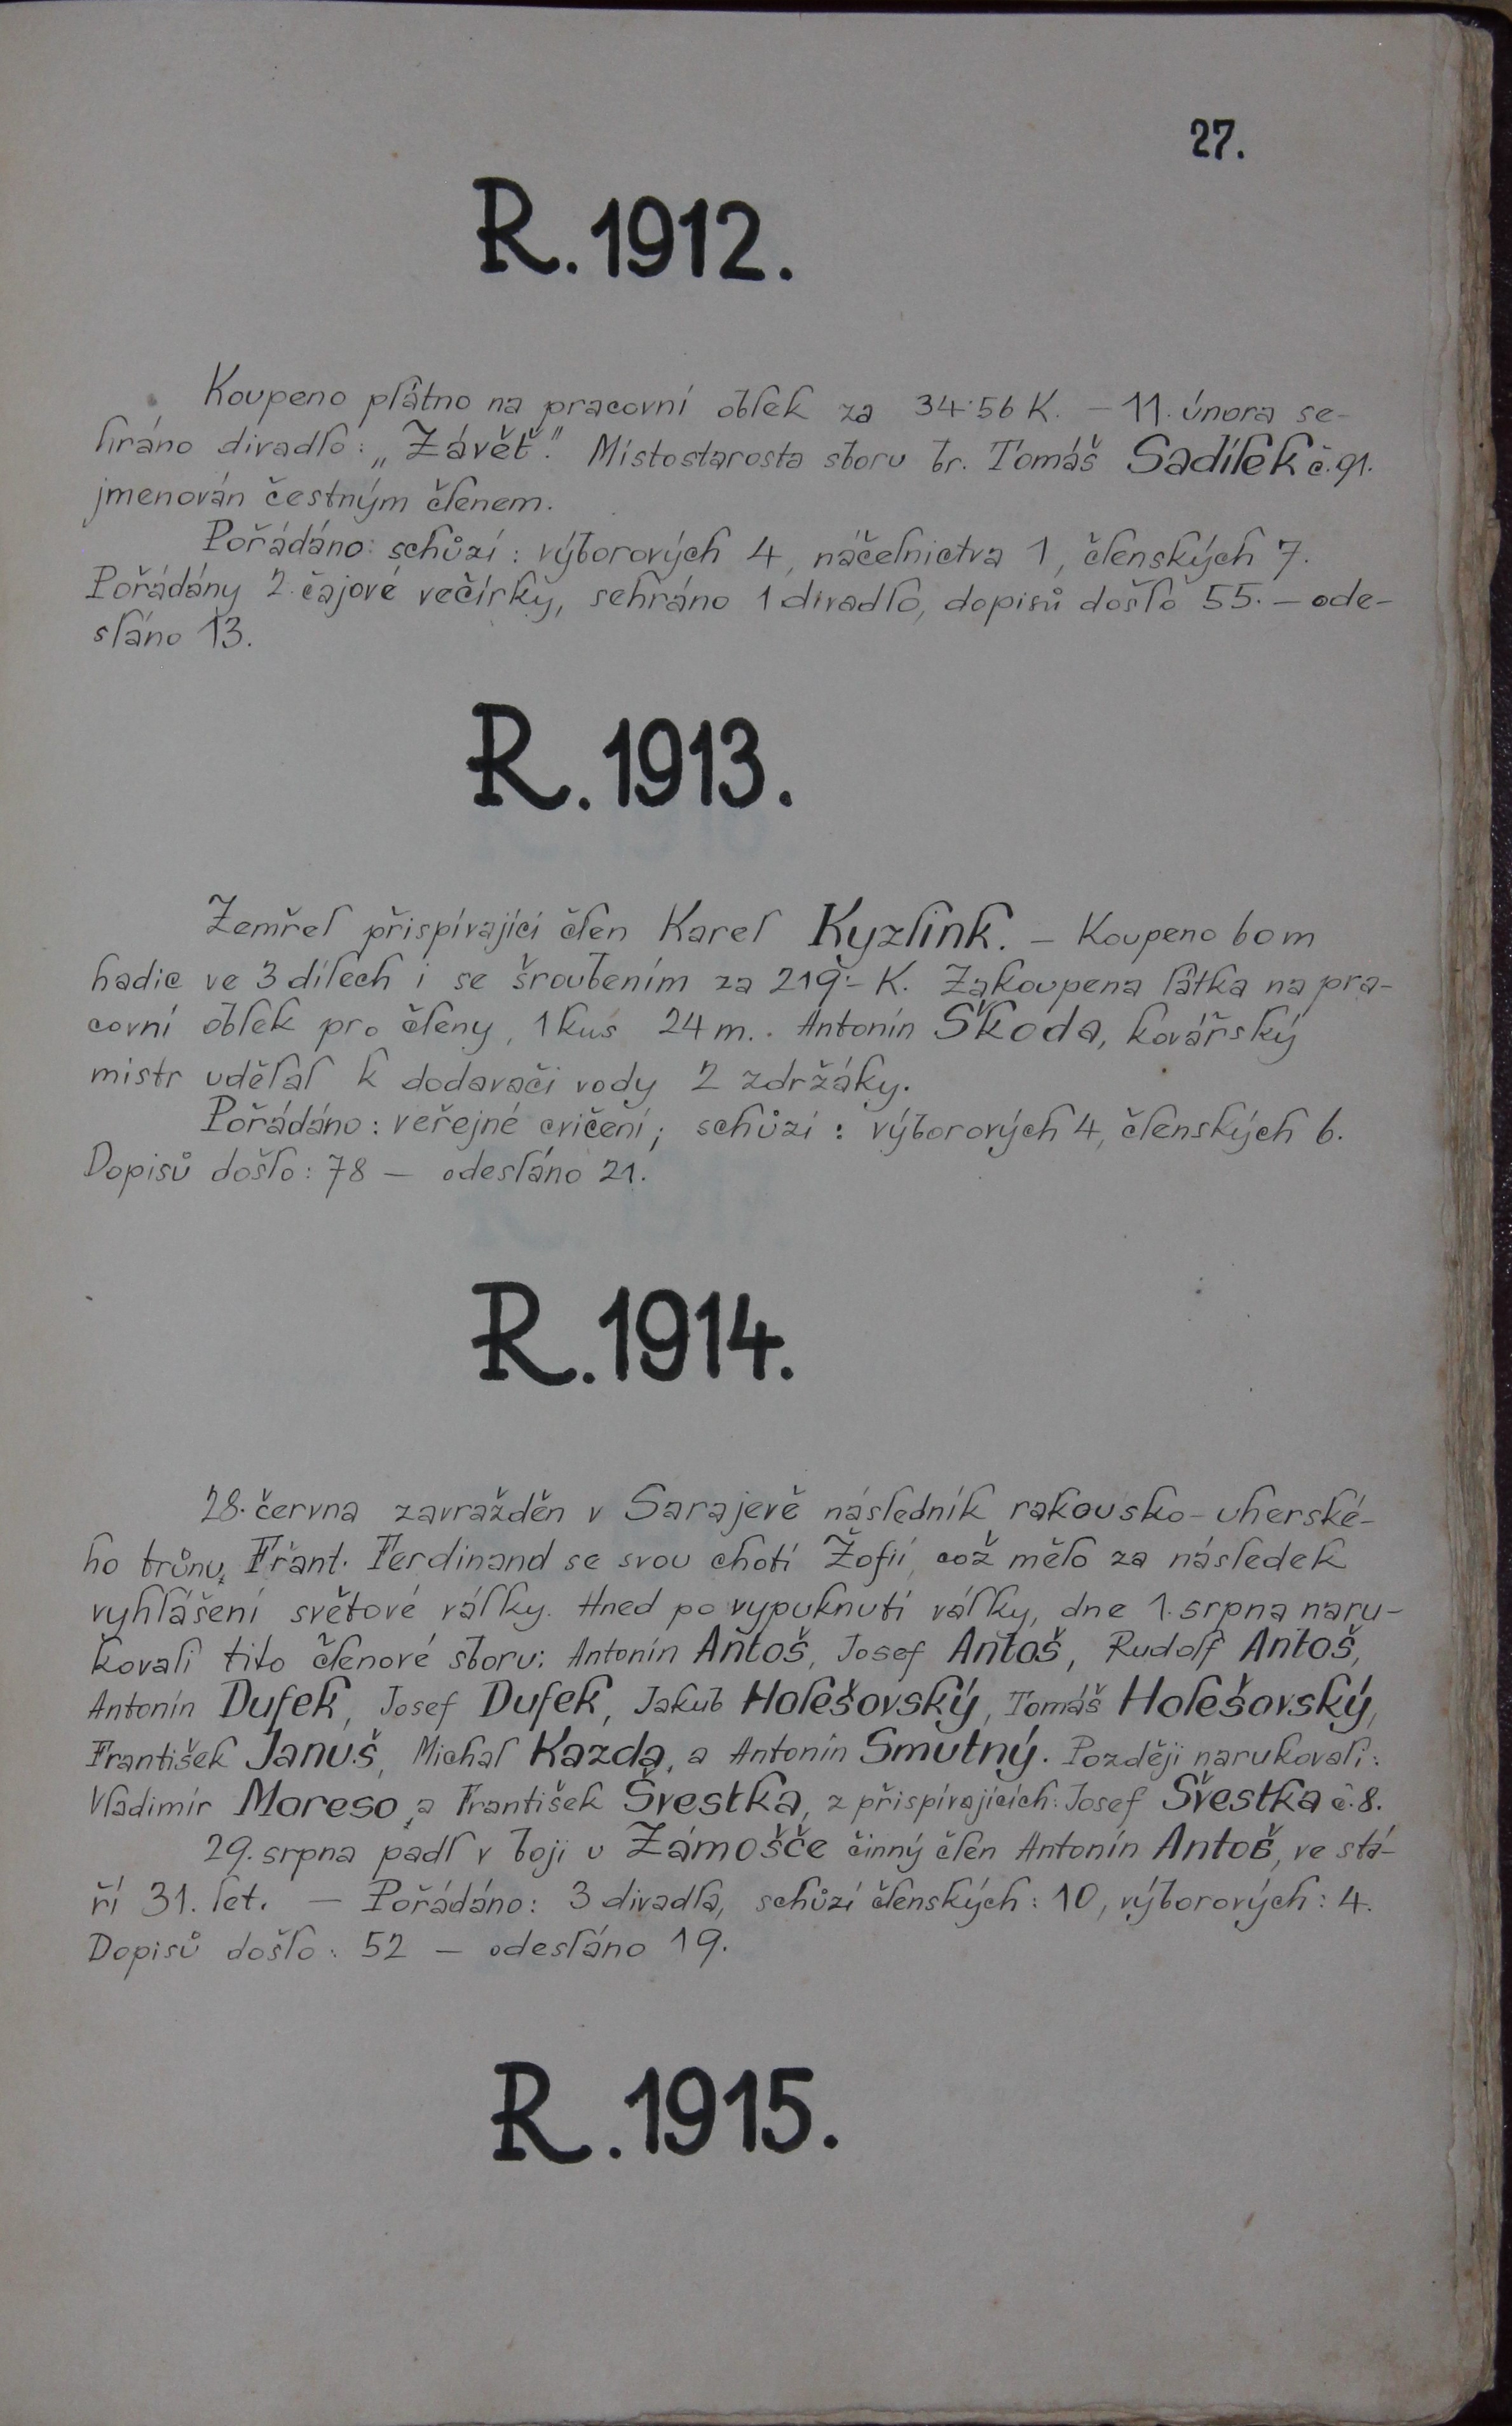 27.
R. 1912.
Koupeno plátno na pracovní oblek za 34·56 K. – 11. února se-
hráno divadlo: „Závěť." Místostarosta sboru br. Tomáš Sadílek č. 91.
jmenován čestným členem.
Pořádáno: schůzí: výborových 4, náčelnictva 1, členských 7.
Pořádány 2 čajové večírky, sehráno 1 divadlo, dopisů došlo 55. – ode-
sláno 13.
R. 1913.
Zemřel přispívající člen Karel Kyzlink. – Koupeno 60 m
hadic ve 3 dílech i se šroubením za 219·– K. Zakoupena látka na pra-
covní oblek pro členy, 1 kus 24 m.. Antonín Škoda, kovářský
mistr udělal k dodavači vody 2 zdržáky.
Pořádáno: veřejné cvičení; schůzí: výborových 4, členských 6.
Dopisů došlo: 78 – odesláno 21.
R. 1914.
28. června zavražděn v Sarajevě následník rakousko-uherské-
ho trůnu, Frant. Ferdinand se svou chotí Žofií, což mělo za následek
vyhlášení světové války. Hned po vypuknutí války, dne 1. srpna naru-
kovali tito členové sboru: Antonín Antoš, Josef Antoš, Rudolf Antoš,
Antonín Dufek, Josef Dufek, Jakub Holešovský, Tomáš Holešovský,
František Januš, Michal Kazda, a Antonín Smutný. Později narukovali:
Vladimír Moreso, a František Švestka, z přispívajících: Josef Švestka č. 8.
29. srpna padl v boji u Zámošče činný člen Antonín Antoš, ve stá-
ří 31. let. – Pořádáno: 3 divadla, schůzí členských: 10, výborových: 4.
Dopisů došlo: 52 – odesláno 19.
R. 1915.